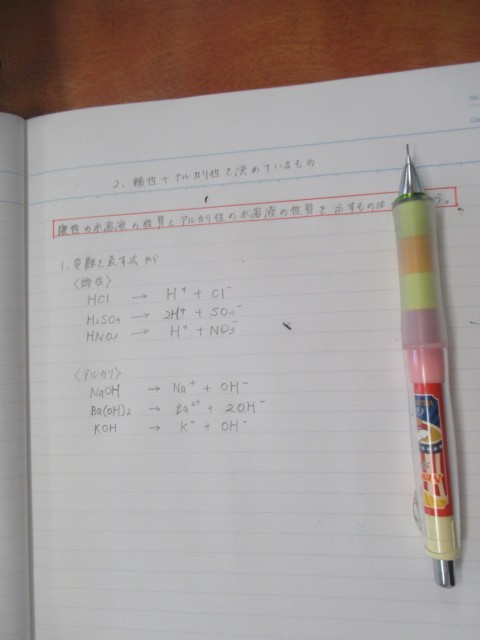 2. 酸性やアルカリ性を決めているもの
酸性の水溶液の性質とアルカリ性の水溶液の性質を示すものは
1. 電離を表す式から
〈酸性〉
HCl → H⁺ + Cl⁻
H₂SO₄ → 2H⁺ + SO₄⁻
HNO₃ → H⁺ + NO₃⁻
〈アルカリ〉
NaOH → Na⁺ + OH⁻
Ba(OH)₂ → Ba²⁺ + 2OH⁻
KOH → K⁺ + OH⁻